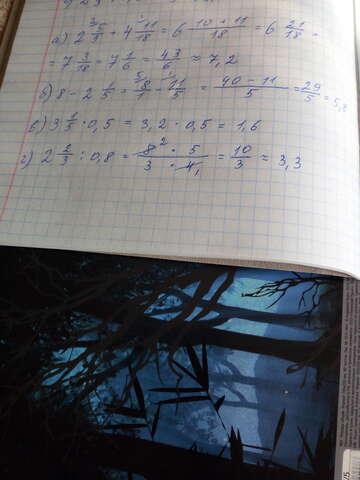 а) 2 5/9 + 4 11/18 = 6 (10 + 11)/18 = 6 21/18 =
= 7 3/18 = 7 1/6 = 43/6 ≈ 7,2
б) 8 - 2 1/5 = 8/1 - 11/5 = (40 - 11)/5 = 29/5 = 5,8
в) 3 1/5 · 0,5 = 3,2 · 0,5 = 1,6
г) 2 2/3 : 0,8 = (8 2 · 5)/(3 · 4 1) = 10/3 ≈ 3,3